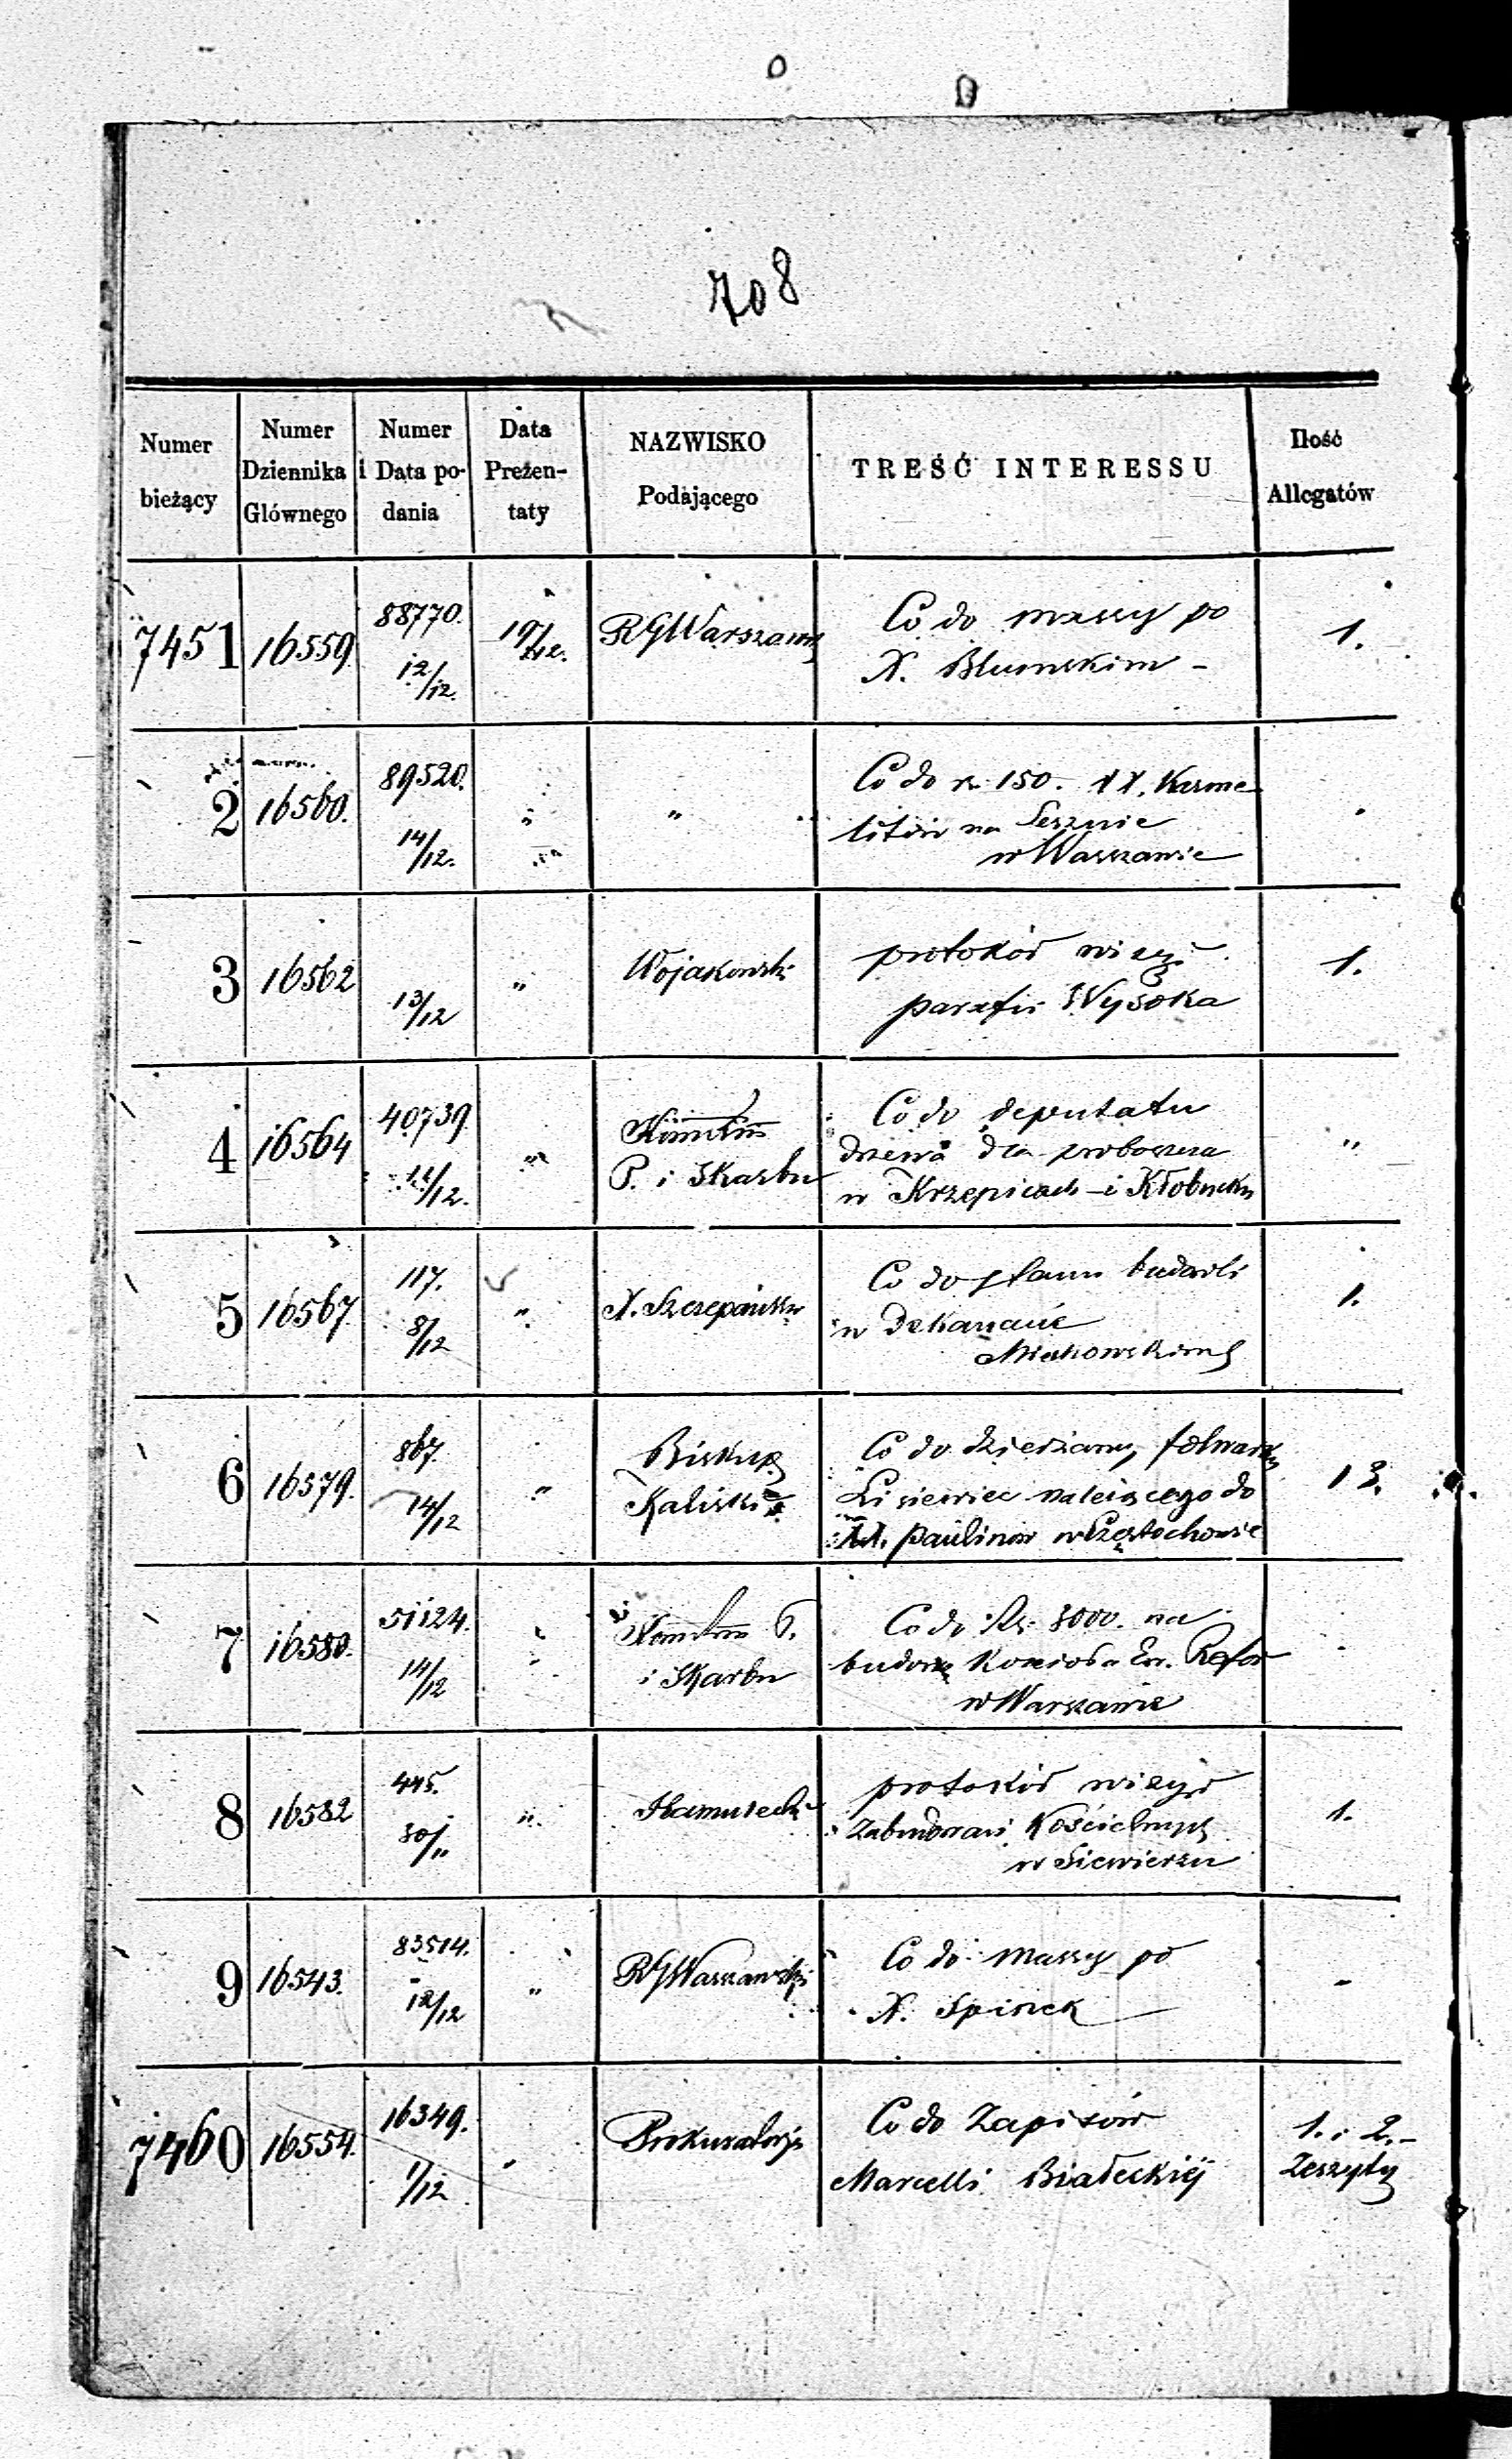 708
Numer bieżący | Numer Dziennika Głównego | Numer i Data podania | Data Prezentaty | NAZWISKO Podającego | TREŚĆ INTERESSU | Ilość Allegatów
7451 | 16559 | 88770. 12/12. | 19/12. | RGWarszaws | Co do massy po
X. Blumskim – | 1.
2 | 16560. | 89520. 14/12. | " | " | Co do rs 150. XX. Karme
litów na Lesznie
w Warszawie
3 | 16562 | 13/12 | " | Wojakowski | protokół wizyi
parafii Wysoka | 1.
4 | 16564 | 40739 /12. | " | P. i Skarbu | Co do deputatu
drzewa dla proboszcza
w Krzepicach i Kłobucku | "
5 | 16567 | 117. 8/12 | " | X. Szczepański | Co do planu budowli
w Dekanacie
Miechowskim | 1.
6 | 16579. | 867. 14/12 | " | Biskup
Kaliski | Co do dzierżawy folwarku
Lisiewiec należącego do
XX. paulinów w Częstochowie | 13.
7 | 16580. | 51124. 14/12 | " | P.
i Skarbu | Co do Rs. 3000. na
budowę Kościoła Ew. Refor
w Warszawie
8 | 16582 | 445. 30/11 | " | protokół wizyi
Zabudowań Kościelnych
w Siewierzu | 1.
9 | 16543. | 83514. 12/12 | " | RGWarszawski | Co do massy po
X. Spinek | -
7460 | 16554. | 16349. 1/12 | " | Prokuratorja | Co do Zapisów
Marcelli Białeckiéj | 1. i 2.–
Zeszyty